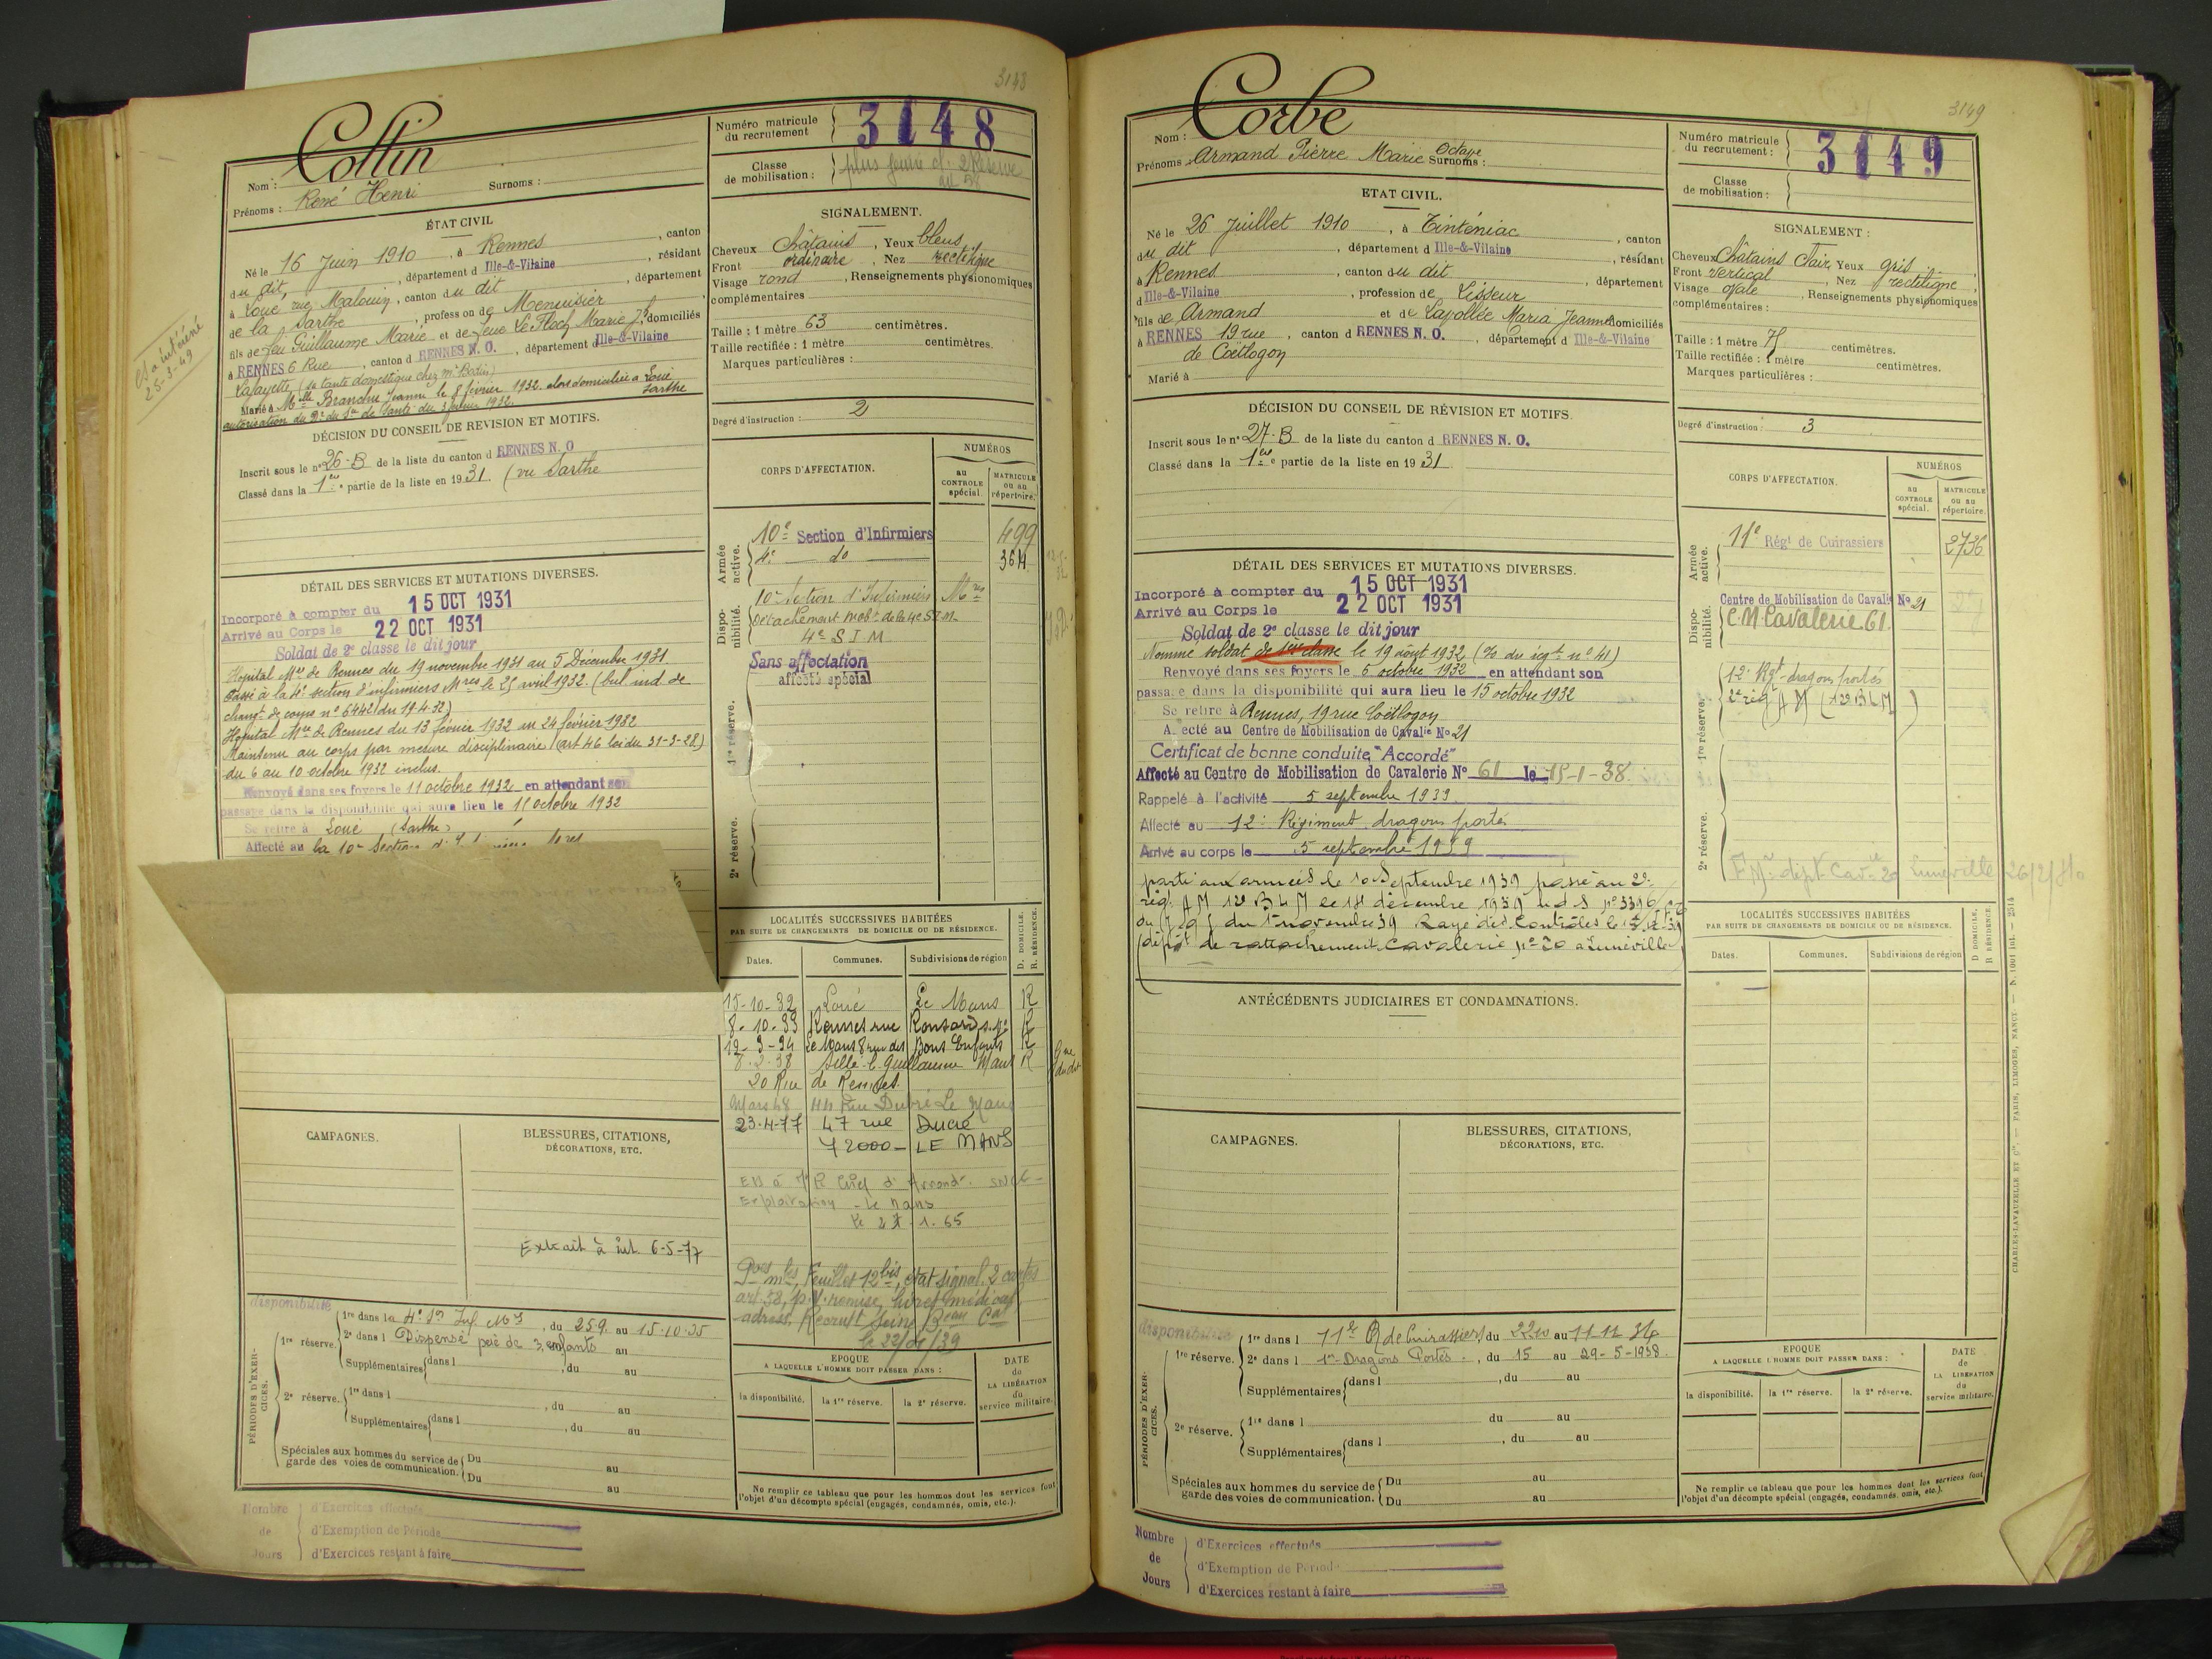 3148
Collin
Nom :
Prénoms : René Henri Surnoms :
Numéro matricule du recrutement 3148
Classe de mobilisation : plus jeune cl. 2 Réserve
ÉTAT CIVIL
Né le 16 Juin 1910, à Rennes, canton
du dit, département d Ille-&-Vilaine, résidant
à Loué rue Malouin, canton du dit, département
de la Sarthe, profession de Menuisier
fils de feu Guillaume Marie et de feue Le Floch Marie Jh, domiciliés
à RENNES 6 Rue, canton d RENNES N. O., département d Ille-&-Vilaine
Lafayette (sa tante domestique chez Mr
Marié à Melle Branchu Jeanne le 8 février 1932. alors domiciliée à Loué Sarthe
autorisation du Dr du Sce de Santé du 3 février 1932.
25-3-49
SIGNALEMENT.
Cheveux Châtains, Yeux bleus
Front ordinaire, Nez rectiligne
Visage rond, Renseignements physionomiques
complémentaires
Taille : 1 mètre 63 centimètres.
Taille rectifiée : 1 mètre centimètres.
Marques particulières :
Degré d'instruction : 2
DÉCISION DU CONSEIL DE REVISION ET MOTIFS.
Inscrit sous le n° 26-B de la liste du canton d RENNES N. O
Classé dans la 1ère partie de la liste en 1931. (vu Sarthe
CORPS D'AFFECTATION.
NUMÉROS
au CONTROLE spécial.
MATRICULE ou au répertoire.
Armée active.
10e Section d'Infirmiers 499
4e do 364
Disponibilité.
10e Section d'Infirmiers Mres
Détachement mobr de la 4e S.I.M.
4e S I M
Sans affectation
affecté spécial
1re réserve.
2e réserve.
DÉTAIL DES SERVICES ET MUTATIONS DIVERSES.
Incorporé à compter du 15 OCT 1931
Arrivé au Corps le 22 OCT 1931
Soldat de 2e classe le dit jour
Hôpital Mre de Rennes du 19 novembre 1931 au 5 Décembre 1931.
Passé à la 4e section d'infirmiers Mres le 25 avril 1932. (bul. ind. de
changt de corps n° 6442 du 19.4.32)
Hôpital Mre de Rennes du 13 février 1932 au 24 février 1932
Maintenu au corps par mesure disciplinaire (art 46 loi du 31-3-28)
du 6 au 10 octobre 1932 inclus.
Renvoyé dans ses foyers le 11 octobre 1932 en attendant son
passage dans la disponibilité qui aura lieu le 11 octobre 1932
Se retire à Loué (Sarthe)
Affecté au la 10e Section
LOCALITÉS SUCCESSIVES HABITÉES
PAR SUITE DE CHANGEMENTS DE DOMICILE OU DE RÉSIDENCE.
D. DOMICILE. R. RÉSIDENCE.
Dates. Communes. Subdivisions de région
15-10-32 Loué Le Mans R
8-10-33 Rennes rue Ronsard R
12-3-34 Le Mans 8 rue des Bons Enfants R
8-2-38 Sillé-l-Guillaume Mans R
20 Rue de Rennes.
Mars 48 44 Rue Dubré Le Mans
23-4-77 47 rue Ducré
72000- LE MANS
Exploitation - Le Mans
le 27.1.65
CAMPAGNES.
BLESSURES, CITATIONS,
DÉCORATIONS, ETC.
Extrait à int. 6-5-77
Feuillet 12bis, état signal, 2 cartes
art. 58, p.v. remise, livret médical
adress. Recrutt Seine
PÉRIODES D'EXERCICES.
disponibilité
1re réserve. 1re dans la 4e Son Inf. Mre, du 25.9. au 15.10.35
2e dans l Dispensé père de 3 enfants au
Supplémentaires dans l, du au
2e réserve. 1re dans l, du au
Supplémentaires dans l, du au
Spéciales aux hommes du service de garde des voies de communication. Du au
Du au
EPOQUE
A LAQUELLE L'HOMME DOIT PASSER DANS :
la disponibilité. la 1re réserve. la 2e réserve.
DATE de LA LIBÉRATION du service militaire.
Ne remplir ce tableau que pour les hommes dont les services font
l'objet d'un décompte spécial (engagés, condamnés, omis, etc.).
Nombre de Jours
d'Exercices effectués
d'Exemption de Période
d'Exercices restant à faire
3149
Corbe
Nom :
Prénoms Armand Pierre Marie Octave Surnoms :
Numéro matricule du recrutement : 3149
Classe de mobilisation :
ETAT CIVIL.
Né le 26 Juillet 1910, à Tinténiac, canton
du dit, département d Ille-&-Vilaine, résidant
à Rennes, canton du dit, département
d Ille-&-Vilaine, profession de Lisseur
fils de Armand et de Lavollée Maria Jeanne domiciliés
à RENNES 19 rue, canton d RENNES N. O., département d Ille-&-Vilaine
de Coëtlogon
Marié à
SIGNALEMENT :
Cheveux Châtains Clair, Yeux gris
Front vertical, Nez rectiligne
Visage ovale, Renseignements physionomiques
complémentaires :
Taille : 1 mètre 75 centimètres.
Taille rectifiée : 1 mètre centimètres.
Marques particulières :
Degré d'instruction : 3
DÉCISION DU CONSEIL DE RÉVISION ET MOTIFS.
Inscrit sous le n° 27-B de la liste du canton d RENNES N. O.
Classé dans la 1ère partie de la liste en 1931.
CORPS D'AFFECTATION.
NUMÉROS
au CONTROLE spécial.
MATRICULE ou au répertoire.
Armée active.
11e Régt de Cuirassiers 2736
Disponibilité.
Centre de Mobilisation de Cavalie No 21
C.M. Cavalerie 61.
1re réserve.
12e Rgt dragons portés
2e régt A M (12e B L M)
2e réserve.
Lunéville 26/2/40
DÉTAIL DES SERVICES ET MUTATIONS DIVERSES.
Incorporé à compter du 15 OCT 1931
Arrivé au Corps le 22 OCT 1931
Soldat de 2e classe le dit jour
Nommé soldat de 1ère classe le 19 août 1932 (% du régt n° 41)
Renvoyé dans ses foyers le 6 octobre 1932 en attendant son
passage dans la disponibilité qui aura lieu le 15 octobre 1932
Se retire à Rennes, 19 rue Coëtlogon
Affecté au Centre de Mobilisation de Cavalie No 21
Certificat de bonne conduite "Accordé"
Affecté au Centre de Mobilisation de Cavalerie N° 61 le 15-1-38.
Rappelé à l'activité 5 septembre 1939
Affecté au 12e Régiment dragons portés
Arrivé au corps le 5 septembre 1939
parti aux armées le 10 Septembre 1939 passé au 2e
rég. A M 12e B L M le 14 décembre 1939
du 1er novembre 39 Rayé des Contrôles le
(dépôt de rattachement Cavalerie n° 20 à Lunéville)
ANTÉCÉDENTS JUDICIAIRES ET CONDAMNATIONS.
LOCALITÉS SUCCESSIVES HABITÉES
PAR SUITE DE CHANGEMENTS DE DOMICILE OU DE RÉSIDENCE.
D DOMICILE. R RÉSIDENCE.
Dates. Communes. Subdivisions de région
CAMPAGNES.
BLESSURES, CITATIONS,
DÉCORATIONS, ETC.
PÉRIODES D'EXERCICES.
disponibilité
1re réserve. 1re dans l 11e R de Cuirassiers, du 22.10 au 11.11 34
2e dans l 1er Dragons Portés, du 15 au 29-5-1938.
Supplémentaires dans l, du au
2e réserve. 1re dans l du au
Supplémentaires dans l, du au
Spéciales aux hommes du service de garde des voies de communication. Du au
Du au
EPOQUE
A LAQUELLE L'HOMME DOIT PASSER DANS :
la disponibilité. la 1re réserve. la 2e réserve.
DATE de LA LIBERATION du service militaire.
Ne remplir ce tableau que pour les hommes dont les services font
l'objet d'un décompte spécial (engagés, condamnés, omis, etc.).
Nombre de Jours
d'Exercices effectués
d'Exemption de Période
d'Exercices restant à faire
CHARLES-LAVAUZELLE ET Cie — PARIS, LIMOGES, NANCY